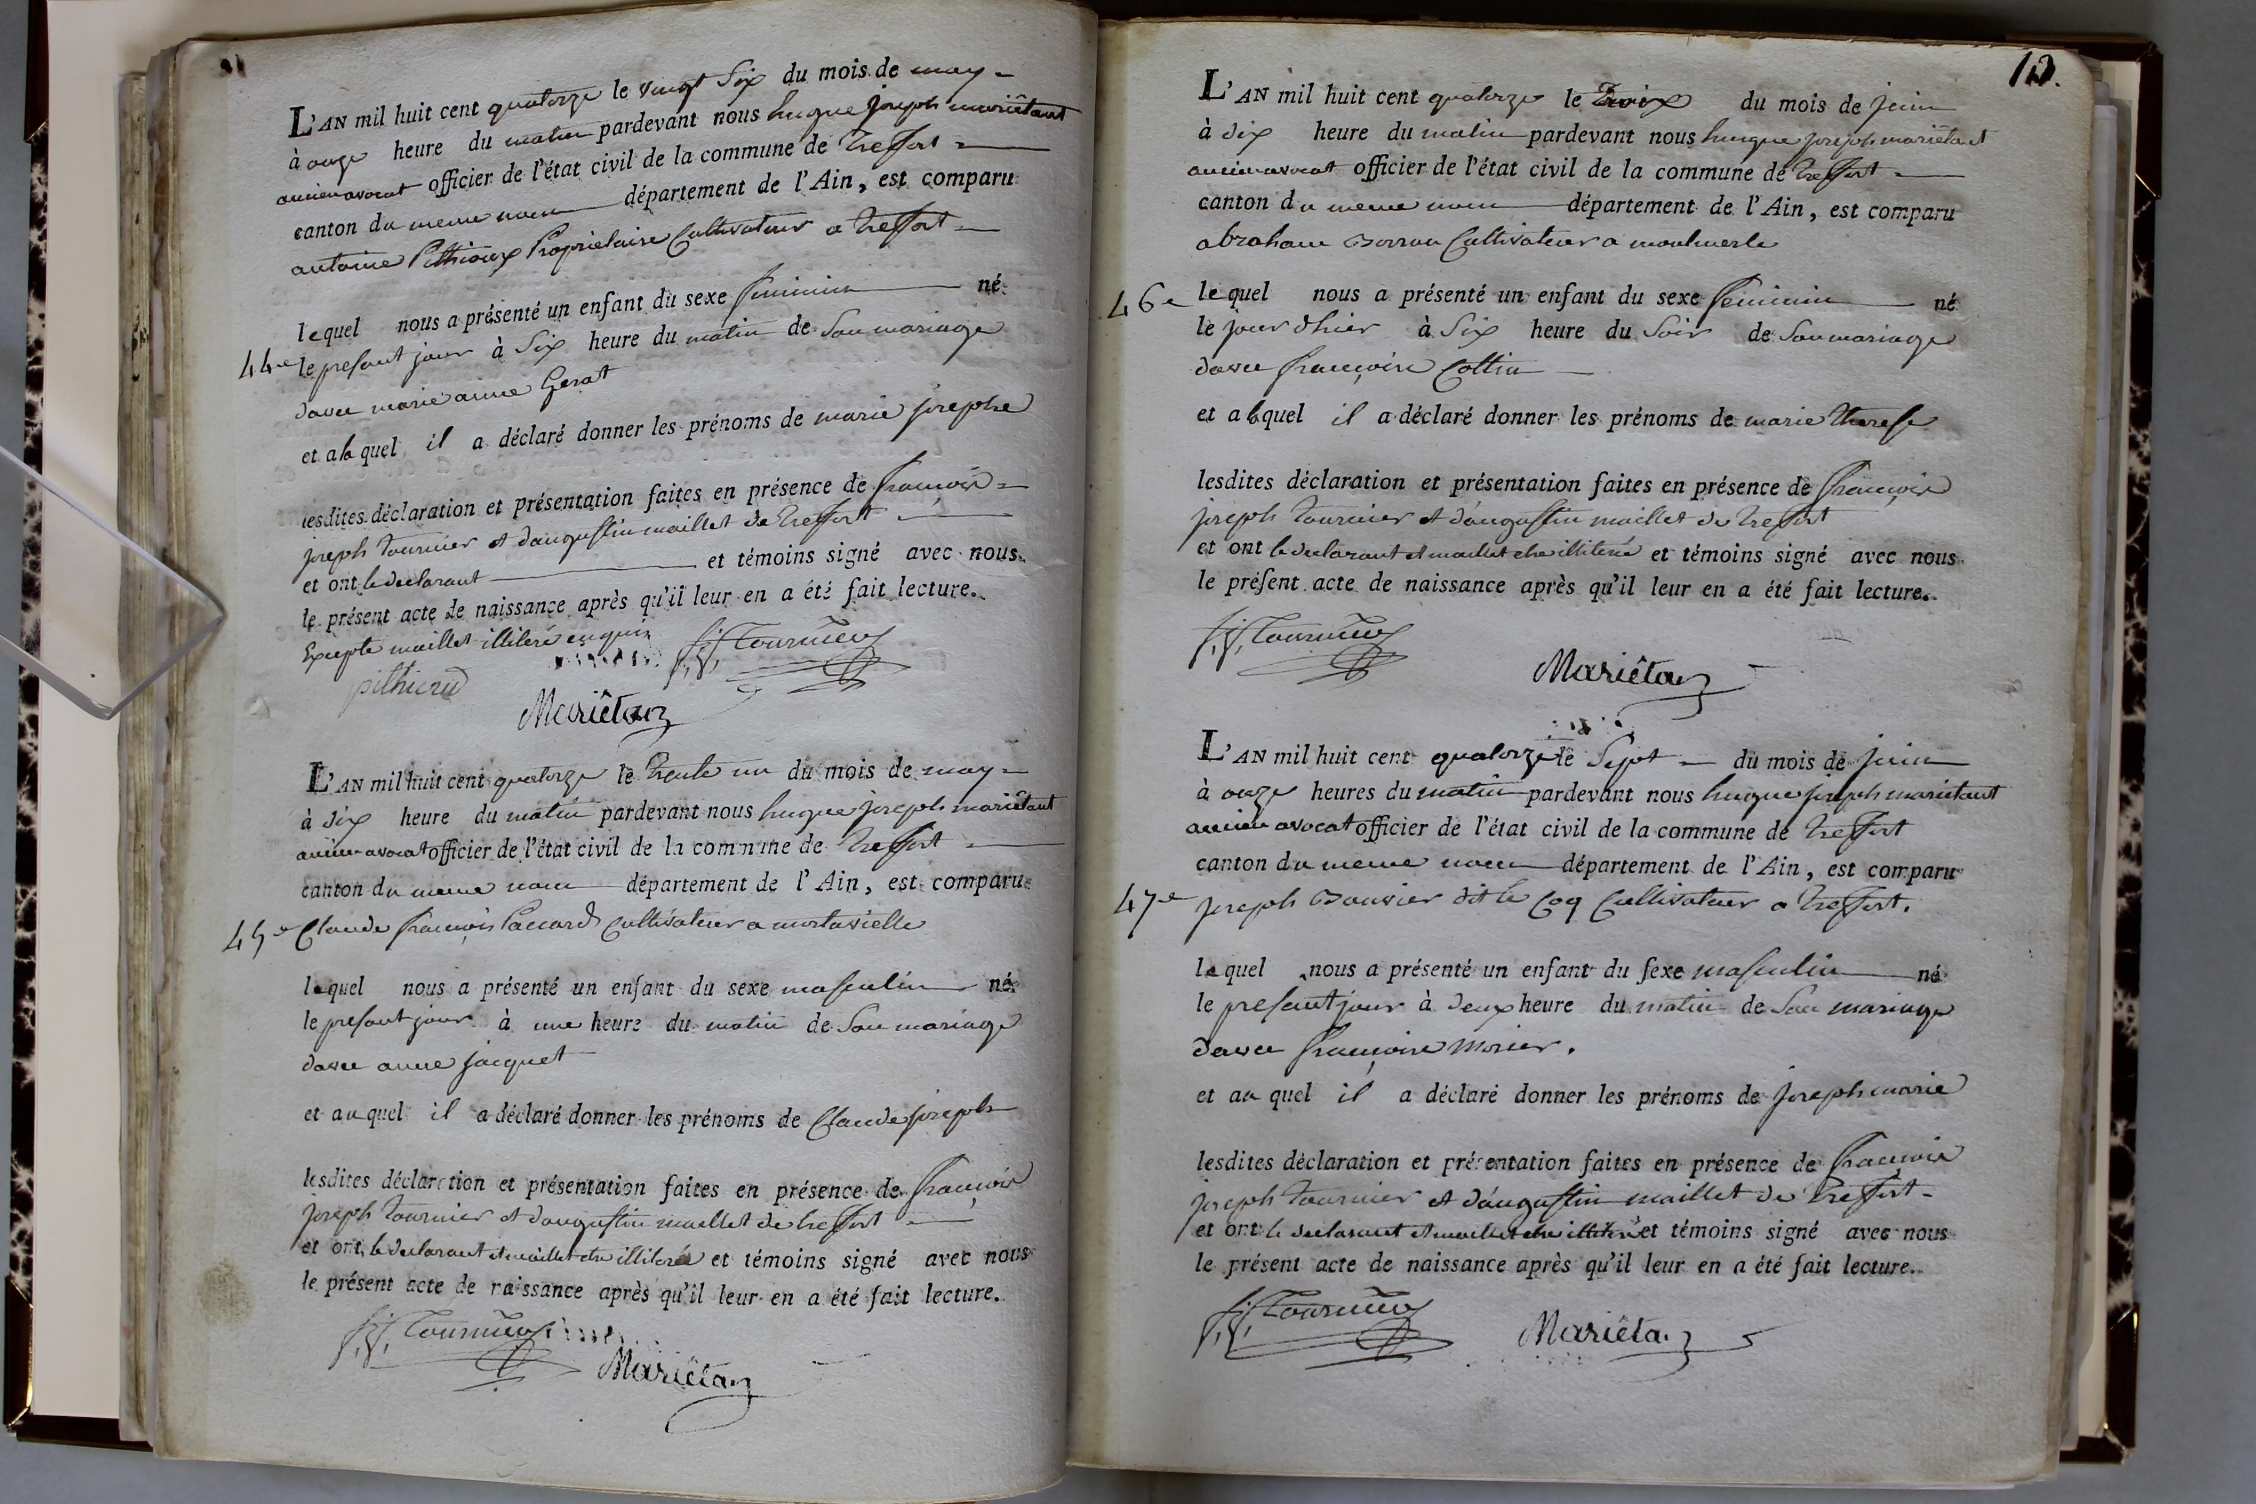 L'AN mil huit cent quatorze le vingt Six du mois de may
à onze heure du matin pardevant nous hugue joseph mariêtant
ancien avocat officier de l'état civil de la commune de treffort
canton du meme nom département de l'Ain, est comparu
antoine Pithioux Propriétaire Cultivateur a treffort
lequel nous a présenté un enfant du sexe feminin né
44e le present jour à Six heure du matin de Son mariage
davec marie anne Gerat
et a la quel il a déclaré donner les prénoms de marie josephe
lesdites déclaration et présentation faites en présence de françois
joseph tournier et daugustin maillet de treffort
et ont le declarant et témoins signé avec nous
le présent acte de naissance après qu'il leur en a été fait lecture.
Excepte maillet illiteré enquis
f. j. Tournier
pithieud
Mariêtan
L'AN mil huit cent quatorze le trente un du mois de may
à dix heure du matin pardevant nous hugue joseph mariêtant
ancien avocat officier de l'état civil de la commune de treffort
canton du meme nom département de l'Ain, est comparu
45e Claude françois Paccard Cultivateur a mortavielle
lequel nous a présenté un enfant du sexe masculin né
le present jour à une heure du matin de Son mariage
davec anne jacquet
et au quel il a déclaré donner les prénoms de Claude joseph
lesdites déclaration et présentation faites en présence de françois
joseph tournier et daugustin maillet de treffort
et ont le declarant et maillet etre illiteré et témoins signé avec nous
le présent acte de naissance après qu'il leur en a été fait lecture.
f. j. Tournier
Mariêtan
L'AN mil huit cent quatorze le Troix du mois de juin
à dix heure du matin pardevant nous hugue joseph mariêtant
ancien avocat officier de l'état civil de la commune de treffort
canton du meme nom département de l'Ain, est comparu
abraham Borron Cultivateur a montmerle
46e lequel nous a présenté un enfant du sexe feminin né
le jour dhier à Six heure du Soir de Son mariage
davec françoise Cottin
et a la quel il a déclaré donner les prénoms de marie therese
lesdites déclaration et présentation faites en présence de françois
joseph tournier et d'augustin maillet de treffort
et ont le declarant et maillet etre illiteré et témoins signé avec nous
le présent acte de naissance après qu'il leur en a été fait lecture.
f. j. Tournier
Mariêtan
L'AN mil huit cent quatorze le Sept du mois de juin
à onze heures du matin pardevant nous hugue joseph mariêtant
ancien avocat officier de l'état civil de la commune de treffort
canton du meme nom département de l'Ain, est comparu
47e joseph Bouvier dit le Coq Cultivateur a treffort.
lequel nous a présenté un enfant du sexe masculin né
le present jour à deux heure du matin de Son mariage
davec françoise Morier.
et au quel il a déclaré donner les prénoms de joseph marie
lesdites déclaration et présentation faites en présence de françois
joseph tournier et d'augustin maillet de treffort
et ont le declarant et maillet etre illiteré et témoins signé avec nous
le présent acte de naissance après qu'il leur en a été fait lecture.
f. j. Tournier
Mariêtan